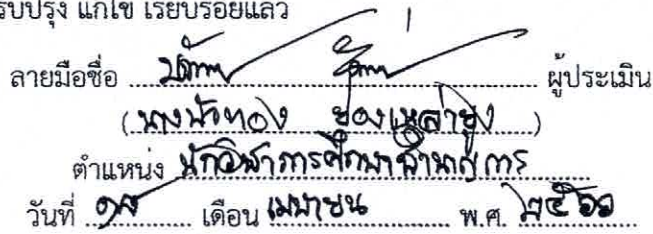 รับปรุง แก้ไข เรียบร้อยแล้ว
ลายมือชื่อ ผู้ประเมิน
(นางบัวทอง
ตำแหน่ง นักวิชาการศึกษาชำนาญการ
วันที่ เดือน เมษายน พ.ศ. ๒๕๖๑